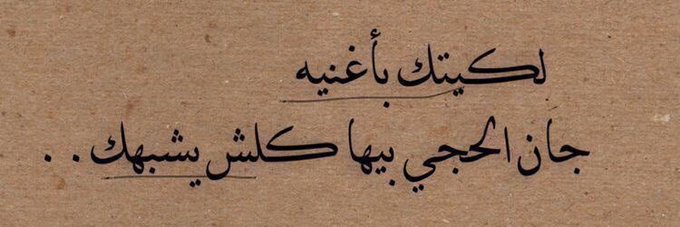 لكيتك بأغنيه
جان الحجي بيها كلش يشبهك . .